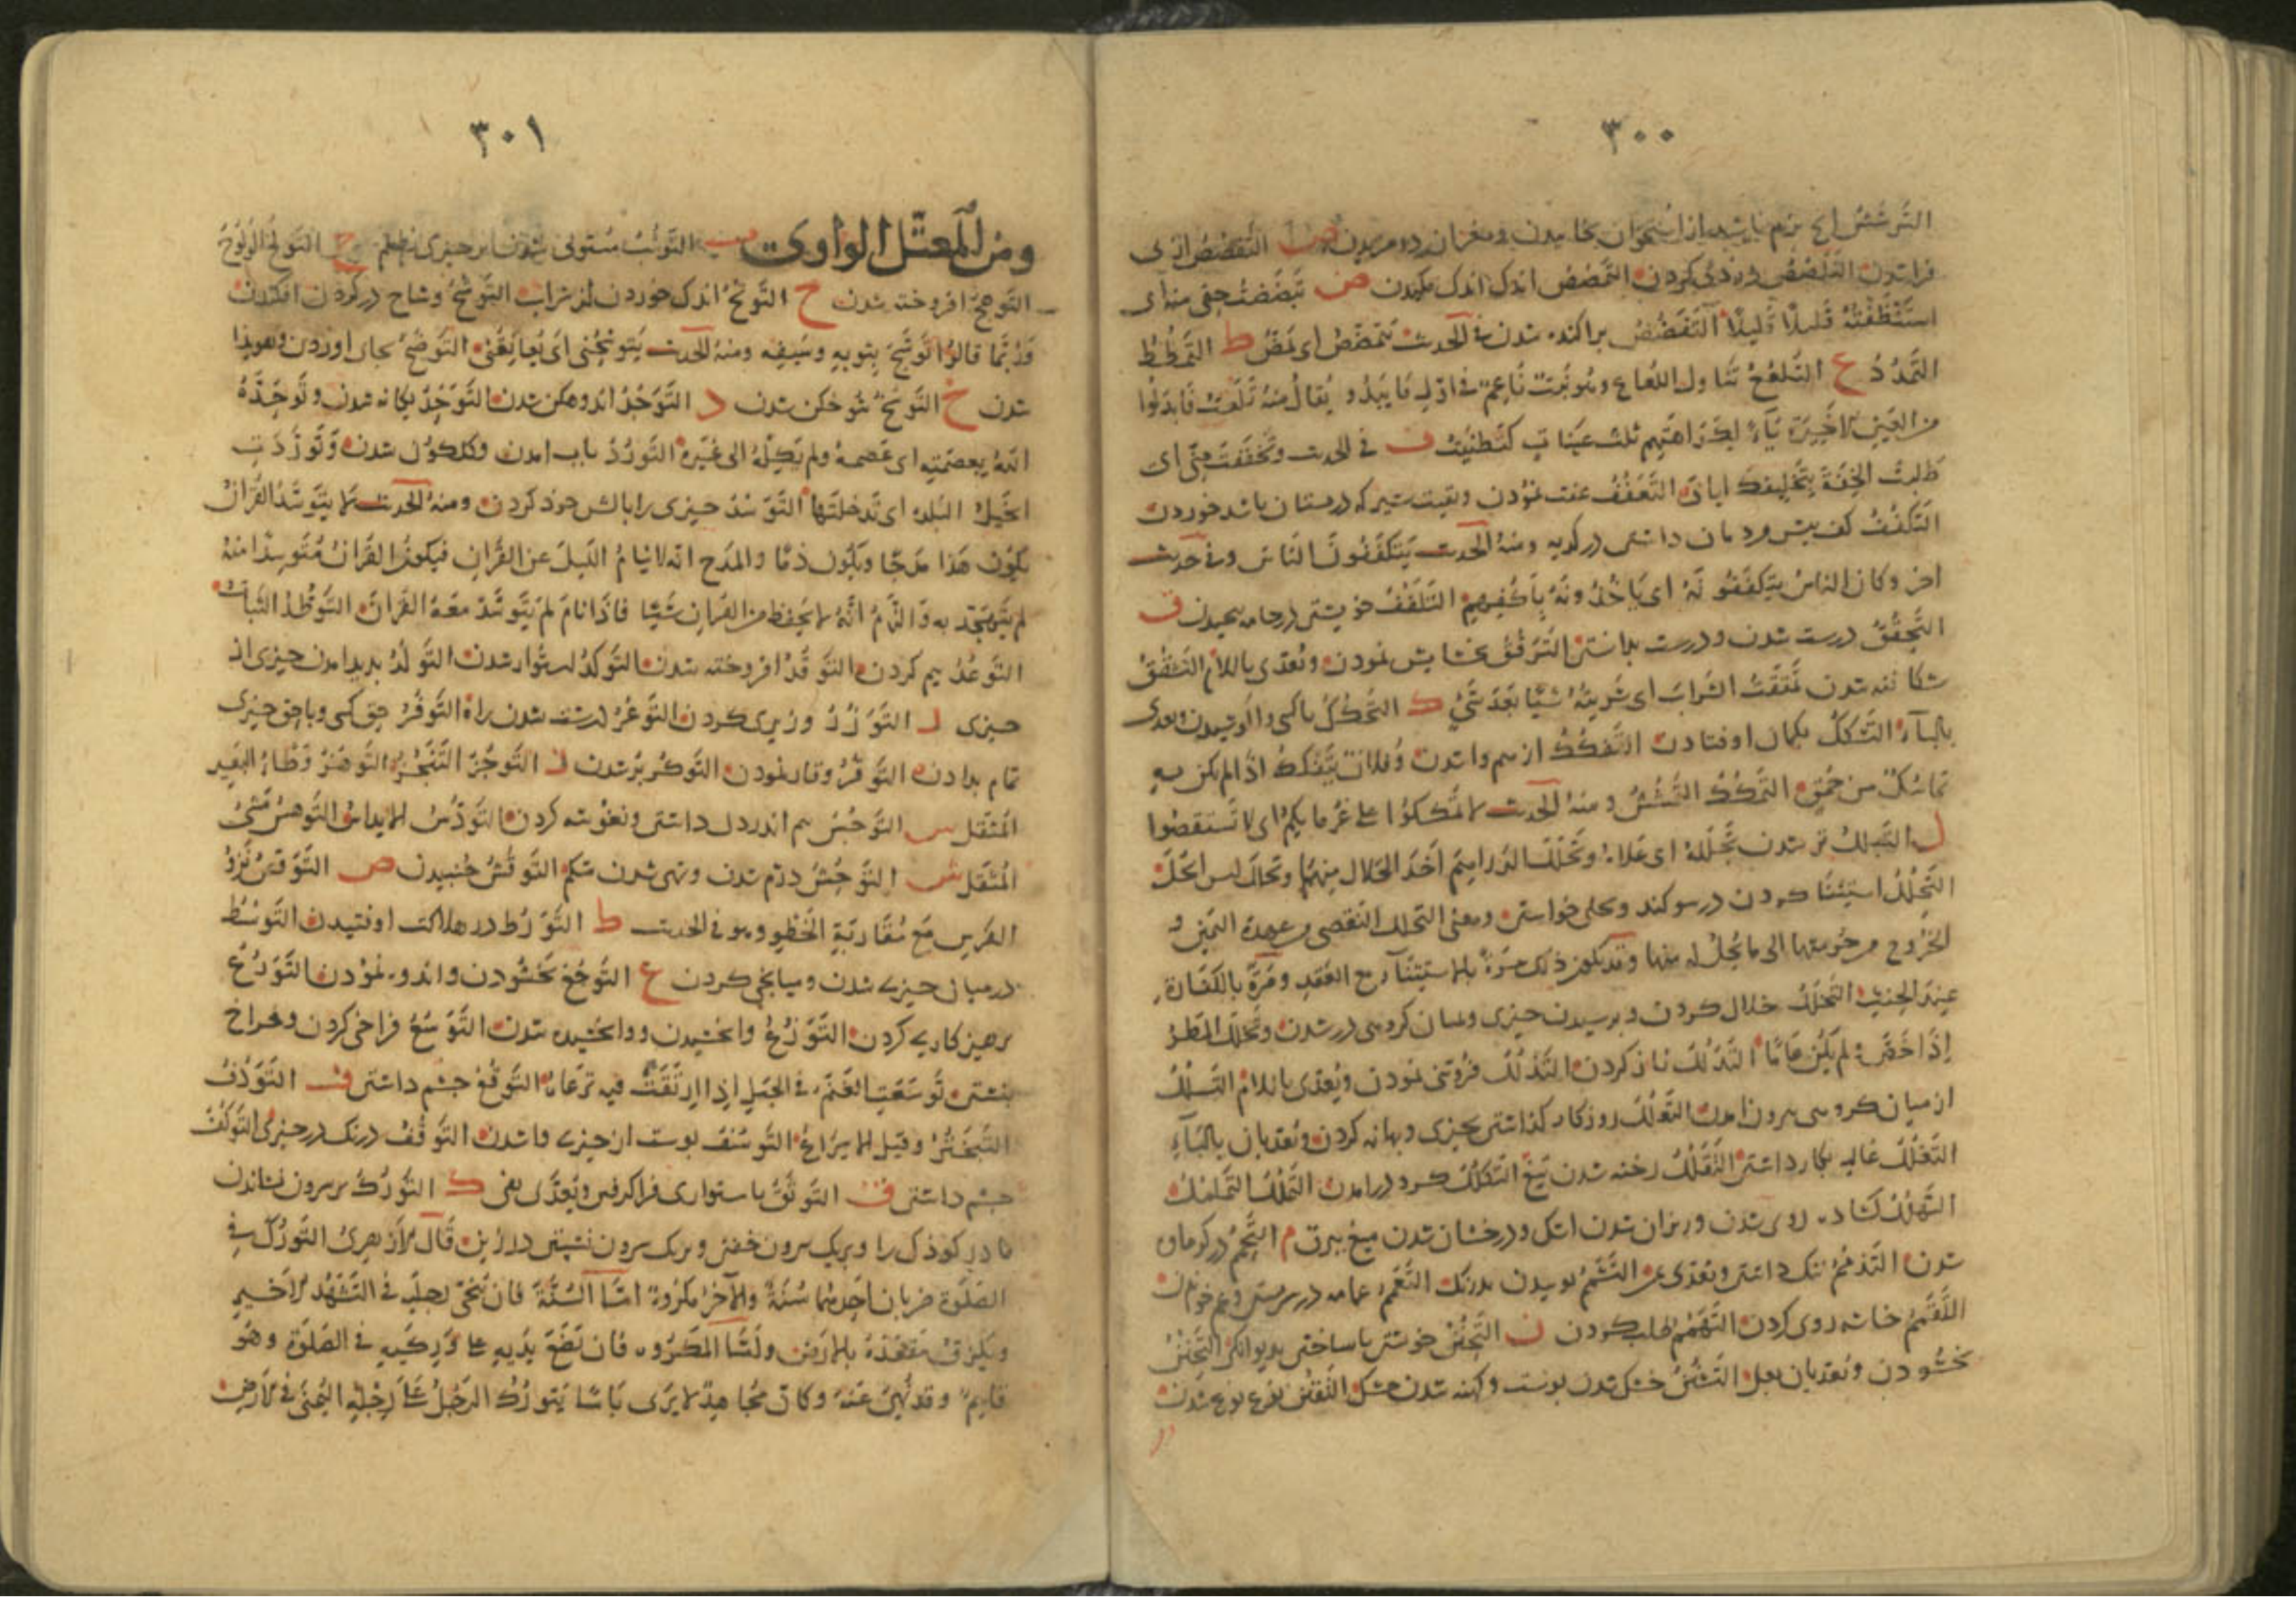 ٣٠٠
التمشش نرم باشد از استخوان بخاييدن ومغز ان ص التقصص از پى
فراشدن التلصص دزدى كردن التمصص اندك اندك مكيدن ض تبضضت حقى منه اى
استنظفته قليلا قليلا التفضض پراكنده شدن فى الحديث ط التمطط
التمدد ع التلعع تناول اللعاع وهو نبت ناعم فى اول ما يبدو يقال منه تلعيت فابدلوا
من العين الاخيرة ياء لكراهتهم ثلث عينات كتظنيت ف فى الحديث وتخففت منى اى
طلبت الخفة بتخليفك اياى التعفف عفت نمودن وبقيت شير كه در پستان باشد خوردن
التكفف كف پيش ودمان داشتن در كديه ومنه الحديث يتكففون الناس وفى حديث
اخر وكان الناس يتكففونه اى ياخذونه باكفهم التلفف خويشتن در جامه پيچيدن ق
التحقق درست شدن ودرست بدانستن الترقق بخشايش نمودن ويعدى باللام التشقق
شكافته شدن تمققت الشراب اى شربته شيئا بعد شئ ك التحكك
بالباء التشكك بكمان اوفتادن التفكك ازهم واشدن وفلان يتفكك اذا لم يكن به
تماسك من حمق التمكك التمشش ومنه الحديث لا تمككوا على غرمايكم اى لا تستقصوا
ل التبلل تر شدن تجلله اى علاه وتجللت الدراهم اخذ الجلال منها
التحلل استثنا كردن در سوكند وبحلى خواستن ومعنى التحلل التقصى من عهدة اليمين و
الخروج من حرمتها الى ما يحل له منها وقد يكون ذلك مرة بالاستثناء مع العقد ومرة بالكفارة
عند الحنث التخلل خلال كردن وبرسيدن چيزى وبميان كروهى در شدن وتخلل المطر
اذا خص ولم يكن عاما التدلل ناز كردن التذلل فروتنى نمودن ويعدى باللام التسلل
از ميان كروهى بيرون امدن التعلل روزكار كذاشتن بچيزى وبهانه كردن ويعديان بالباء
التغلل غاليه بكار داشتن التفلل رخنه شدن تيغ التكلل كرد درامدن التملل التململ
التهلل كشاده روى شدن وريزان شدن اشك ودرخشان شدن ميغ ببرق م
شدن التذمم ننك داشتن ويعدى بمن التشمم بوييدن بدرنك التعمم عمامه در سر بستن وعم خواندن
خانه روى كردن التهمم طلب كردن ن التجنن خويشتن باساختن بديوانكى التحنن
بخشودن ويعديان بعلى التشنن خشك شدن پوست وكهنه شدن مشك التفنن نوع نوع شدن
٣٠١
ومن المعتل الواوى ب التوثب مستولى شدن بر چيزى بظلم ج التولج الولوج
التوهج افروخته شدن ح التوتح اندك خوردن از شراب التوشح وشاح در كردن افكندن
وربما قالوا توشح بثوبه وسيفه ومنه الحديث يتوشحنى اى يعانقنى التوضح بجاى اوردن وهويدا
شدن خ التوسخ شوخكن شدن د التوجد اندوهكن شدن التوحد يكانه شدن وتوحده
الله بعصمته اى عصمه ولم يكله الى غيره التورد باب امدن وكلكون شدن وتوردت
الخيل البلدة اى تدخلتها التوسد چيزى را بالش خود كردن ومنه الحديث لا يتوسد القران
يكون هذا مدحا ويكون ذما والمدح انه لا ينام الليل عن القران فيكون القران متوسدا منه
لم يتهجد به والذم انه لا يحفظ من القران شيئا فاذا نام لم يتوسد معه القران التوطد الثبات
التوعد بيم كردن التوقد افروخته شدن التوكد استوار شدن التولد پديد امدن چيزى از
چيزى ر التوزر وزيرى كردن التوعر درشت شدن راه التوفر حق كسى وبا حق چيزى
تمام بدادن التوقر وقار نمودن التوكر پر شدن ز التوجز التنجز التوهز وطاء البعير
المثقل س التوجس بيم اندر دل داشتن ونغوشه كردن التودس التوهس مشى
المثقل ش التوحش دژم شدن وتهى شدن شكم التوقش جنبيدن ص التوقص نزو
الفرس مع مقاربة الخطو وهو فى الحديث ط التورط در هلاكت اوفتيدن التوسط
در ميان چيزى شدن وميانجى كردن ع التوجع بخشودن واندوه نمودن التورع
پرهيزكارى كردن التوزع وابخشيدن ووابخشيده شدن التوسع فراخى كردن وفراخ
بنشستن توسعت الغنم فى الجبل اذا ارتقت فيه ترعاه التوقع چشم داشتن ف التوذف
التبختر وقيل الاسراع التوسف پوست از چيزى واشدن التوقف درنك در چيزى التوكف
چشم داشتن ق التوثق باستوارى فراكرفتن ويعدى بفى ك التورك بر سرون نشاندن
مادر كودك را وبر يك سرون خفتن وبر يك سرون نشستن در زين قال الازهرى التورك فى
الصلوة ضربان احدهما سنة والاخر مكروه اما السنة فان ينحى رجليه فى التشهد الاخير
ويلزق مقعده بالارض واما المكروه فان تضع يديه على وركيه فى الصلوة وهو
قايم وقد نهى عنه وكان مجاهد لا يرى باسا يتورك الرجل على رجله اليمنى فى الارض